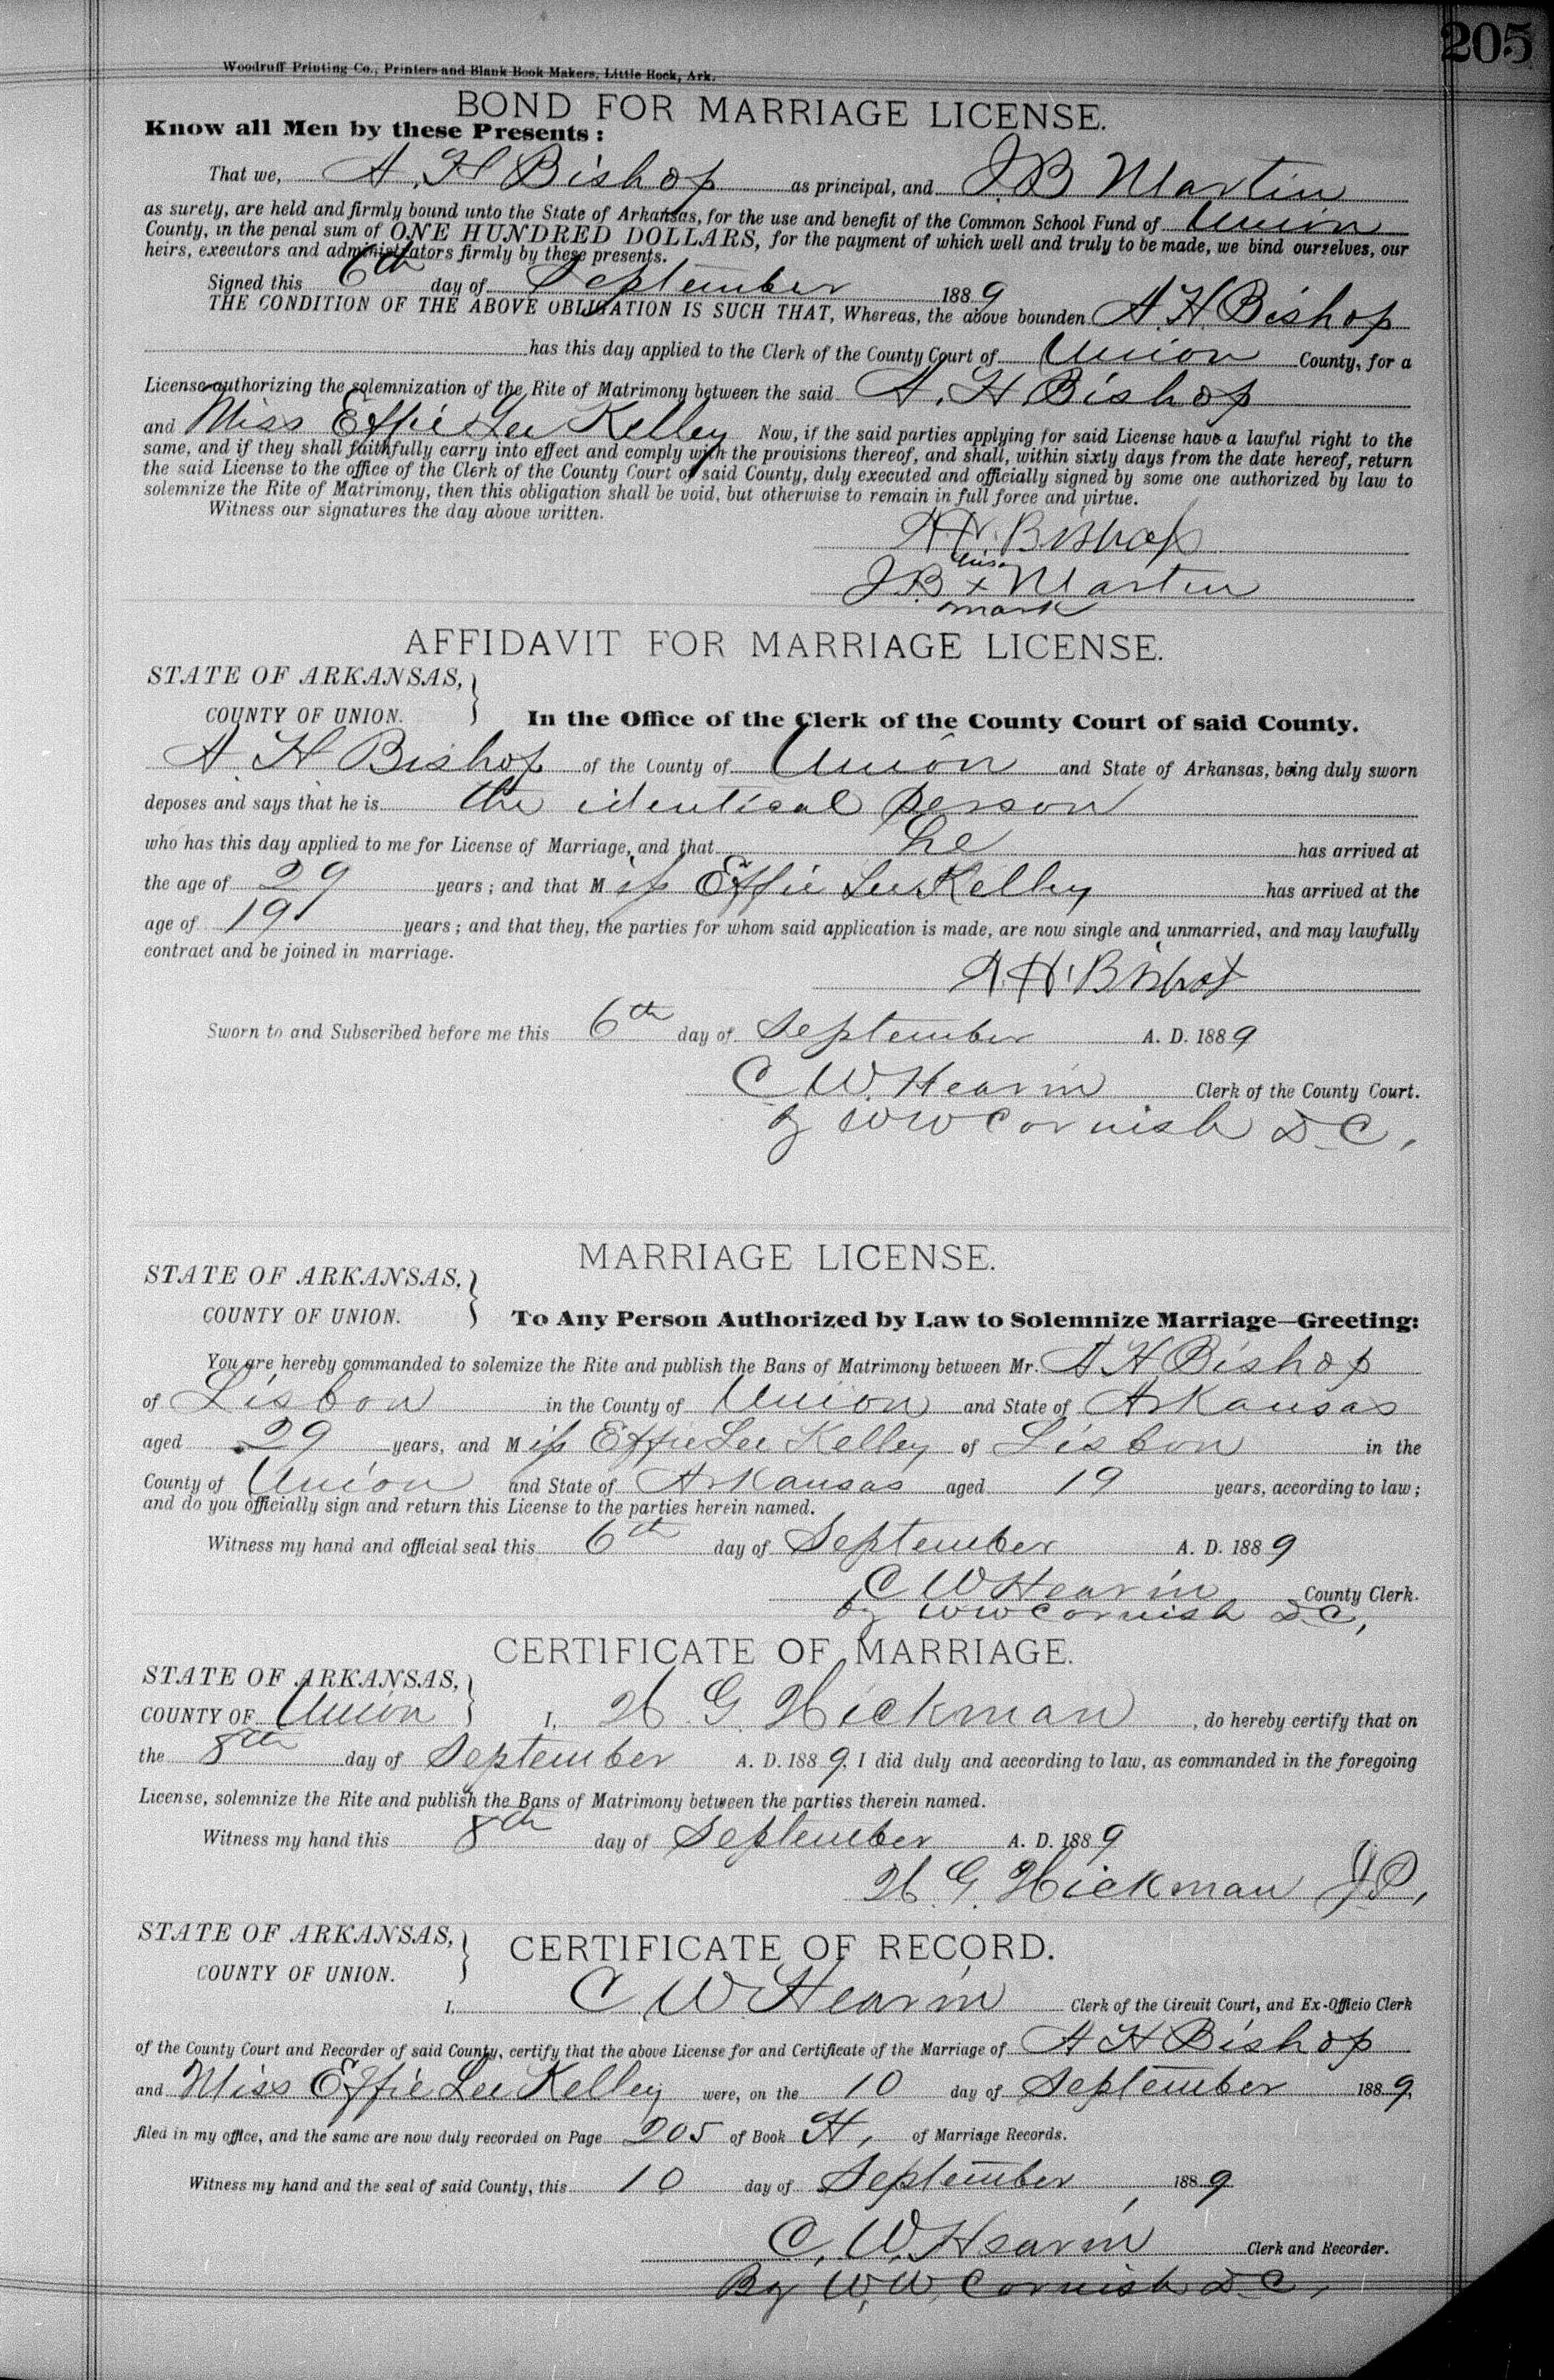 205
Woodruff Printing Co., Printers and Blank Book Makers, Little Rock, Ark.
BOND FOR MARRIAGE LICENSE.
Know all Men by these Presents:
That we, A. H Bishop as principal, and J.B Martin
as surety, are held and firmly bound unto the State of Arkansas, for the use and benefit of the Common School Fund of Union
County, in the penal sum of ONE HUNDRED DOLLARS, for the payment of which well and truly to be made, we bind ourselves, our
heirs, executors and administrators firmly by these presents.
Signed this 6th day of September 1889
THE CONDITION OF THE ABOVE OBLIGATION IS SUCH THAT, Whereas, the above bounden A. H. Bishop
has this day applied to the Clerk of the County Court of Union County, for a
License authorizing the solemnization of the Rite of Matrimony between the said A. H Bishop
and Miss Effie Lee Kelley Now, if the said parties applying for said License have a lawful right to the
same, and if they shall faithfully carry into effect and comply with the provisions thereof, and shall, within sixty days from the date hereof, return
the said License to the office of the Clerk of the County Court of said County, duly executed and officially signed by some one authorized by law to
solemnize the Rite of Matrimony, then this obligation shall be void, but otherwise to remain in full force and virtue.
Witness our signatures the day above written.
A. H. Bishop
his
J.B. x Martin
mark
AFFIDAVIT FOR MARRIAGE LICENSE.
STATE OF ARKANSAS,
COUNTY OF UNION.
In the Office of the Clerk of the County Court of said County.
A. H Bishop of the County of Union and State of Arkansas, being duly sworn
deposes and says that he is the identical person
who has this day applied to me for License of Marriage, and that he has arrived at
the age of 29 years; and that Miss Effie Lee Kelley has arrived at the
age of 19 years; and that they, the parties for whom said application is made, are now single and unmarried, and may lawfully
contract and be joined in marriage.
A. H. Bishop
Sworn to and Subscribed before me this 6th day of September A. D. 1889
C W. Hearin Clerk of the County Court.
by W W Cornish D. C.,
MARRIAGE LICENSE.
STATE OF ARKANSAS,
COUNTY OF UNION.
To Any Person Authorized by Law to Solemnize Marriage—Greeting:
You are hereby commanded to solemize the Rite and publish the Bans of Matrimony between Mr. A H Bishop
of Lisbon in the County of Union and State of Arkansas
aged 29 years, and Miss Effie Lee Kelley of Lisbon in the
County of Union and State of Arkansas aged 19 years, according to law;
and do you officially sign and return this License to the parties herein named.
Witness my hand and official seal this 6th day of September A. D. 1889
C W Hearin County Clerk.
by W W Cornish D.C.,
CERTIFICATE OF MARRIAGE.
STATE OF ARKANSAS,
COUNTY OF Union I, H. G. Hickman, do hereby certify that on
the 8th day of September A. D. 1889, I did duly and according to law, as commanded in the foregoing
License, solemnize the Rite and publish the Bans of Matrimony between the parties therein named.
Witness my hand this 8th day of September A. D. 1889
H. G. Hickman J.P.,
STATE OF ARKANSAS,
COUNTY OF UNION.
CERTIFICATE OF RECORD.
I, C W Hearin Clerk of the Circuit Court, and Ex-Officio Clerk
of the County Court and Recorder of said County, certify that the above License for and Certificate of the Marriage of A H Bishop
and Miss Effie Lee Kelley were, on the 10 day of September 1889,
filed in my office, and the same are now duly recorded on Page 205 of Book H, of Marriage Records.
Witness my hand and the seal of said County, this 10 day of September, 1889
C. W. Hearin Clerk and Recorder.
By W. W. Cornish D. C.,